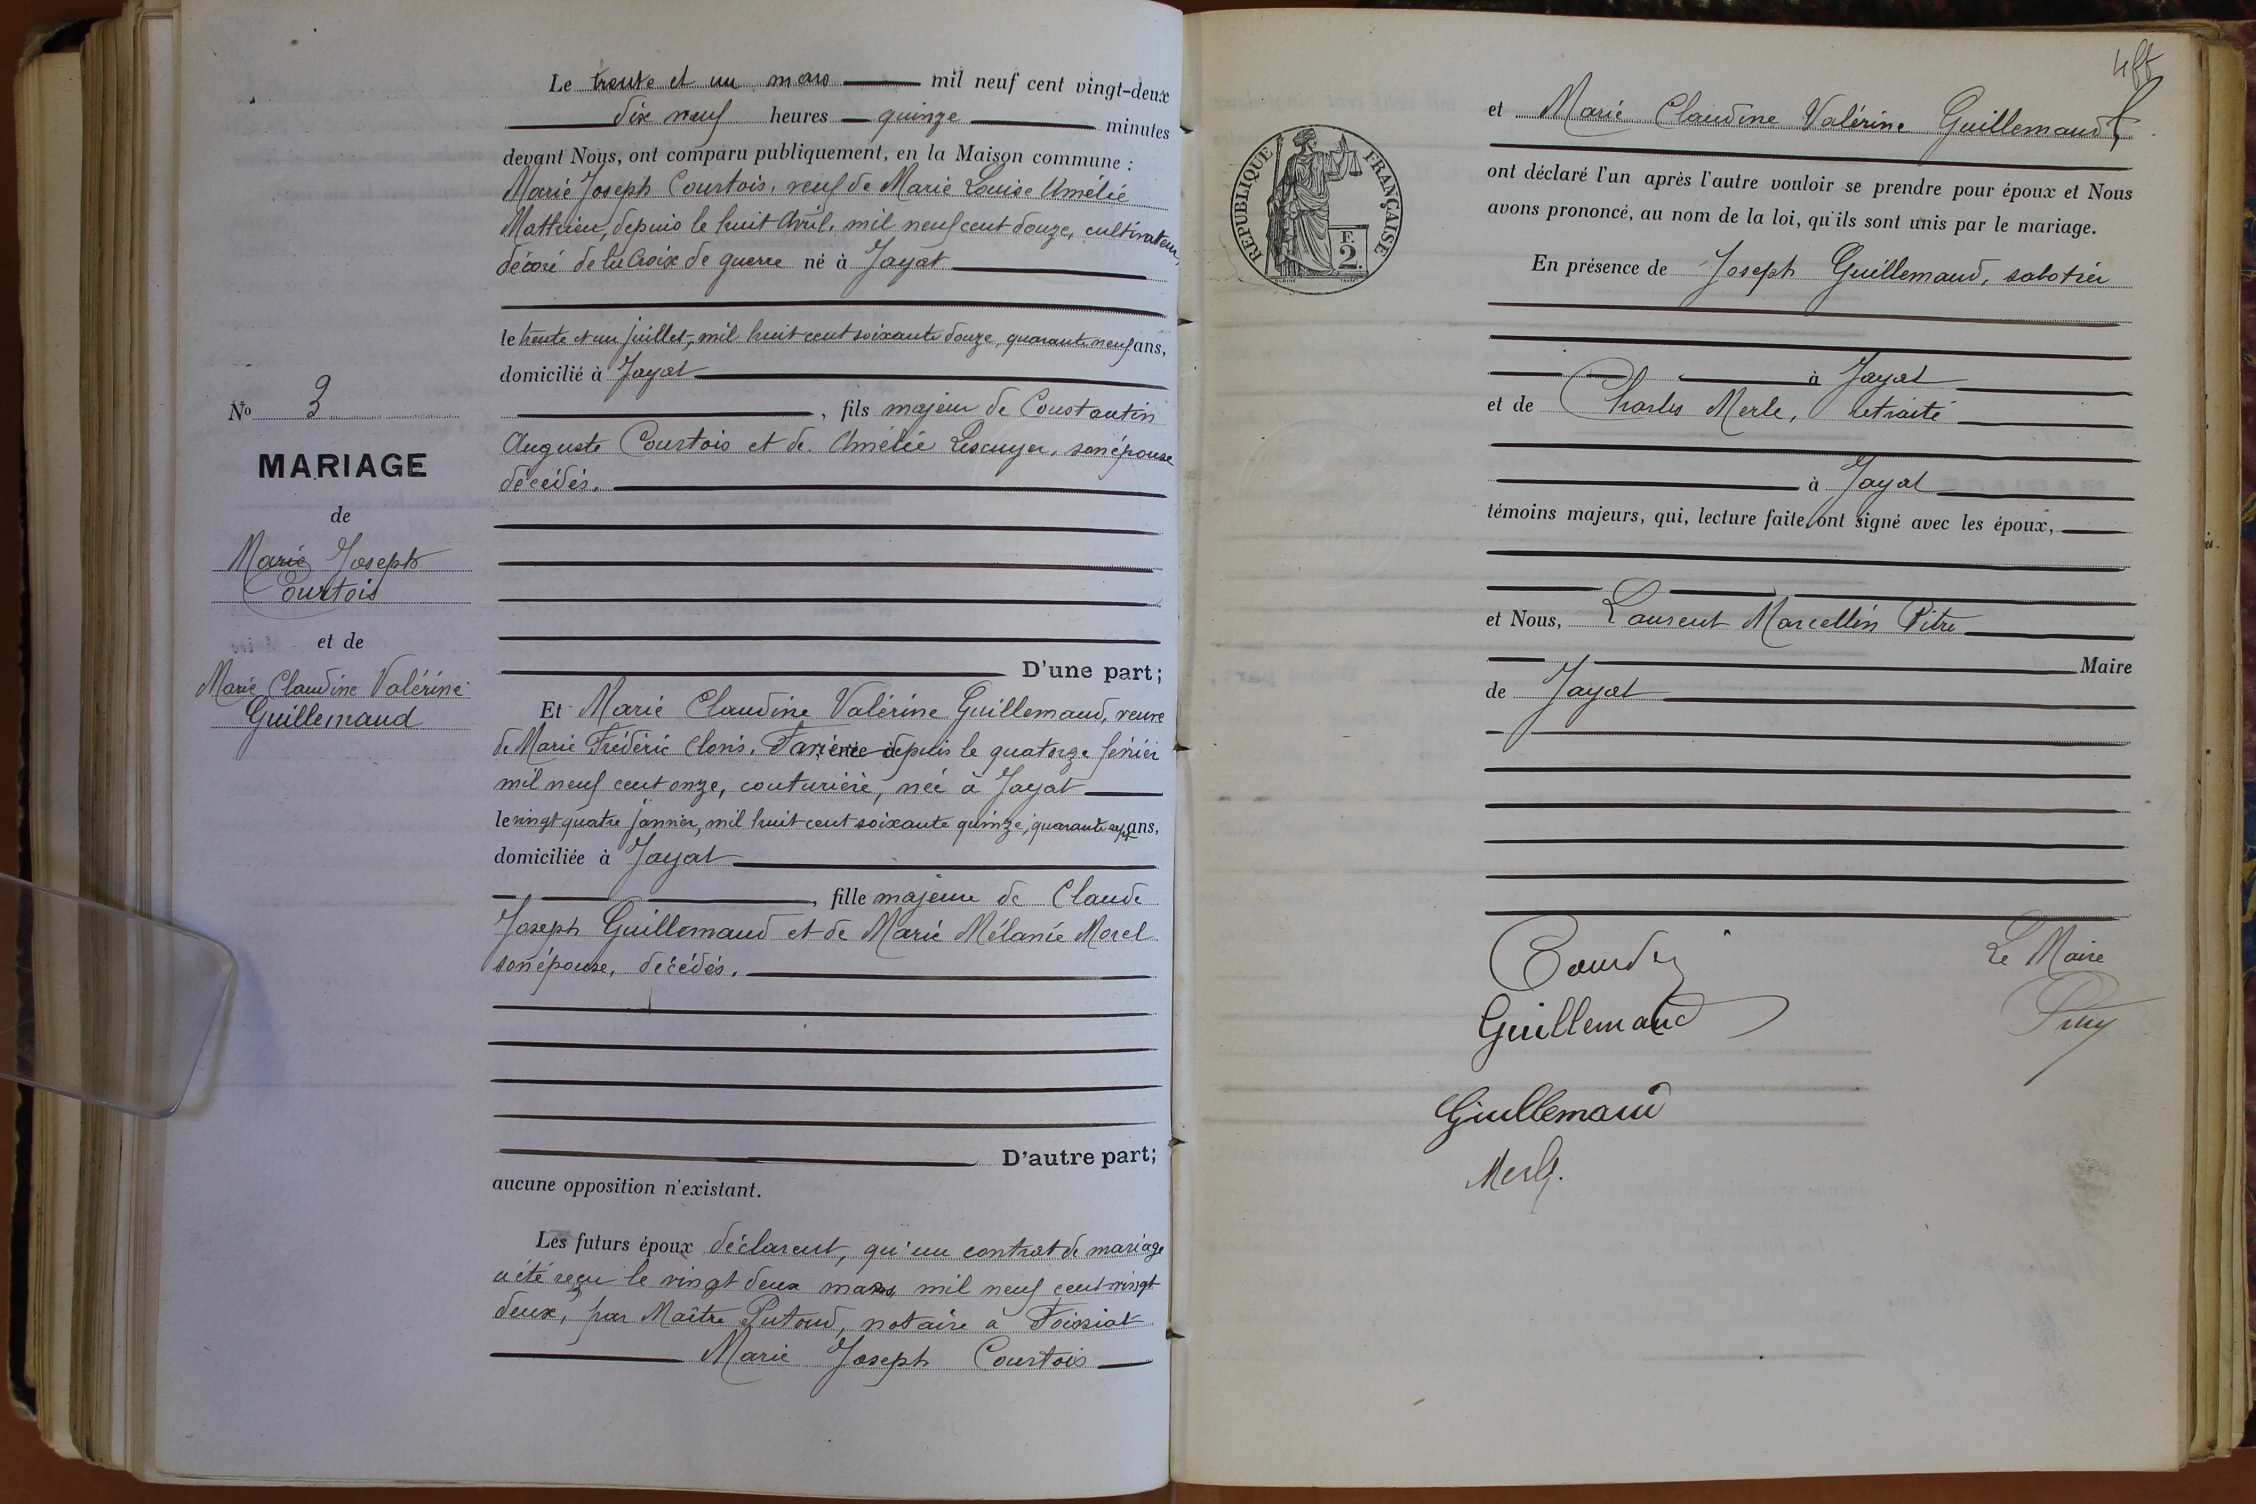 Le trente et un mars mil neuf cent vingt-deux
dix neuf heures quinze minutes
devant Nous, ont comparu publiquement, en la Maison commune :
Marie Joseph Courtois, veuf de Marie Louise Amélie
Mathieu, depuis le huit Avril, mil neuf cent douze, cultivateur,
décoré de la Croix de guerre né à Jayat
le trente et un juillet, mil huit cent soixante douze, quarante neuf ans,
domicilié à Jayat
, fils majeur de Constantin
Auguste Courtois et de Amélie Lescuyer, son épouse
décédés.
D'une part;
Et Marie Claudine Valérine Guillemaud, veuve
de Marie Frédéric Clovis depuis le quatorze février
mil neuf cent onze, couturière, née à Jayat
le vingt quatre janvier, mil huit cent soixante quinze, quarante sept ans,
domiciliée à Jayat
, fille majeure de Claude
Joseph Guillemaud et de Marie Mélanie Morel
son épouse, décédés.
D'autre part;
aucune opposition n'existant.
Les futurs époux déclarent, qu'un contrat de mariage
a été reçu le vingt deux mars mil neuf cent vingt
deux, par Maître Putoud, notaire à Foissiat
Marie Joseph Courtois
No 3
MARIAGE
de
Marie Joseph
Courtois
et de
Marie Claudine Valérine
Guillemaud
RÉPUBLIQUE FRANÇAISE
F.
2.
et Marie Claudine Valérine Guillemaud
ont déclaré l'un après l'autre vouloir se prendre pour époux et Nous
avons prononcé, au nom de la loi, qu'ils sont unis par le mariage.
En présence de Joseph Guillemaud, sabotier
à Jayat
et de Charles Merle, retraité
à Jayat
témoins majeurs, qui, lecture faite, ont signé avec les époux,
et Nous, Laurent Marcellin Pitre
Maire
de Jayat
Le Maire
Guillemaud
Guillemaud